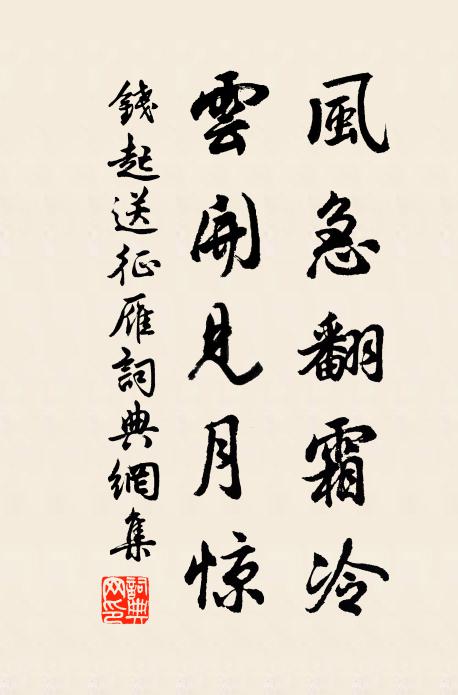 風急翻霜冷
雲開見月惊
錢起送征雁詞典網集
詞典网印